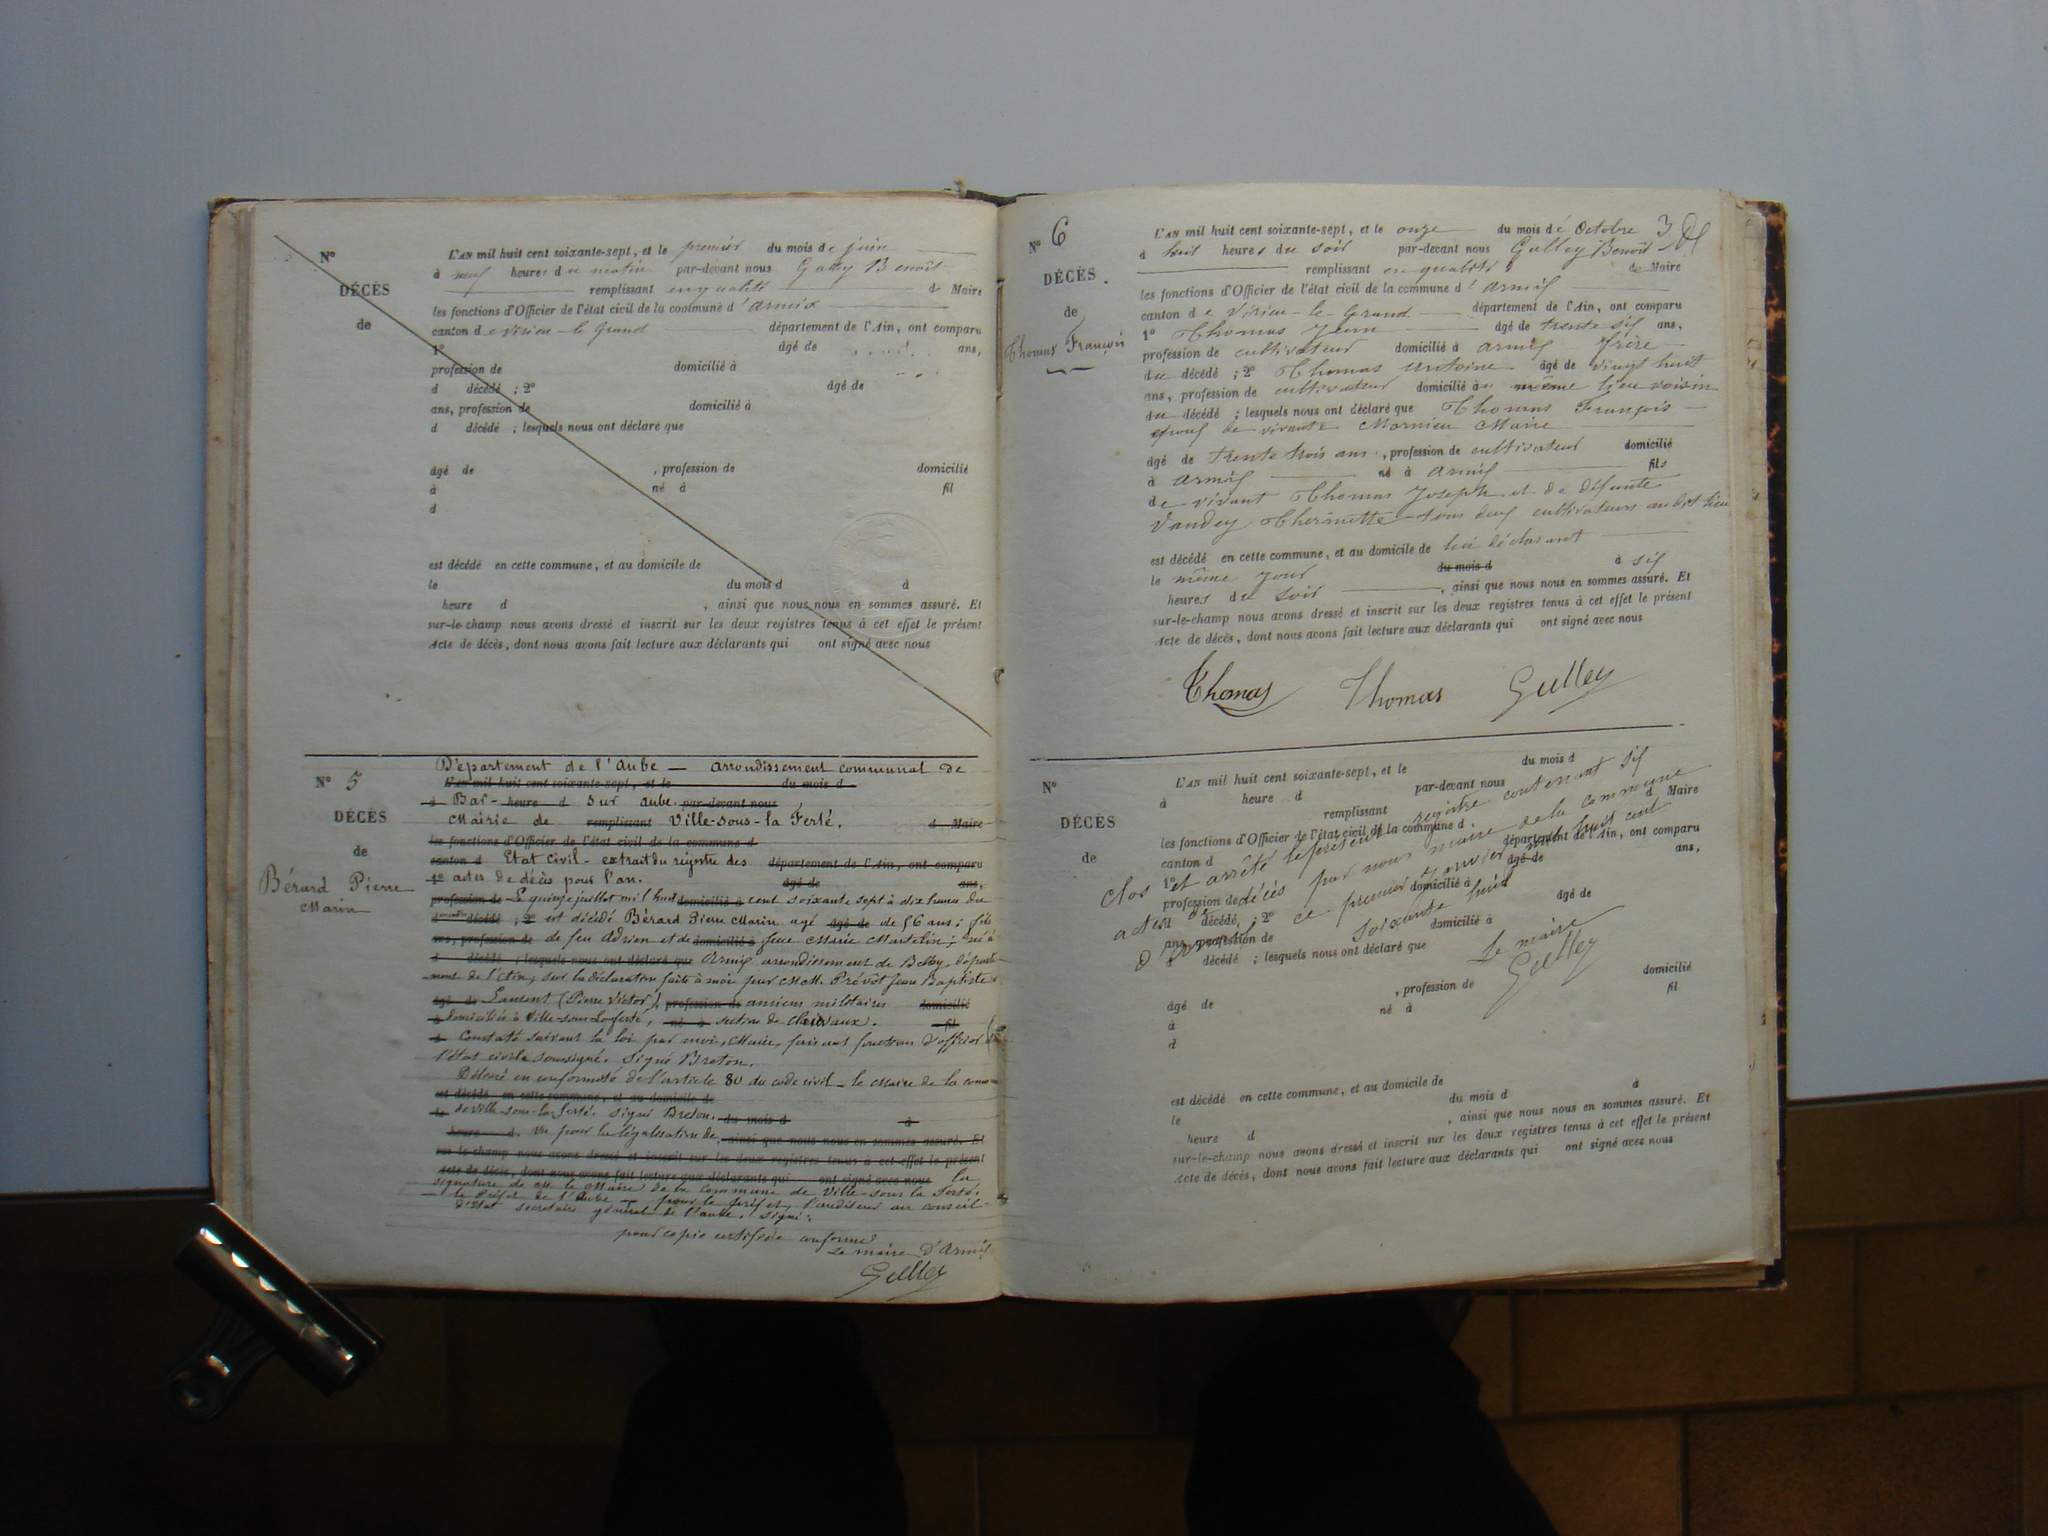 N°
DÉCÈS
de
L'AN mil huit cent soixante-sept, et le premier du mois de juin
à neuf heures du matin par-devant nous Gulley Benoît
remplissant en qualité de Maire
les fonctions d'Officier de l'état civil de la commune d'Armix
canton de Virieu-le-Grand département de l'Ain, ont comparu
1° âgé de ans,
profession de domicilié à
d décédé ; 2° âgé de
ans, profession de domicilié à
d décédé ; lesquels nous ont déclaré que
âgé de , profession de domicilié
à né à fil
d
est décédé en cette commune, et au domicile de
le du mois d à
heure d , ainsi que nous nous en sommes assuré. Et
sur-le-champ nous avons dressé et inscrit sur les deux registres tenus à cet effet le présent
acte de décès, dont nous avons fait lecture aux déclarants qui ont signé avec nous
N° 5
DÉCÈS
de
Bérard Pierre
Marin
Département de l'Aube — arrondissement communal de
L'AN mil huit cent soixante-sept, et le du mois d
à Bar- heure d sur Aube. par-devant nous
Mairie de remplissant Ville-sous-la Ferté. d Maire
les fonctions d'Officier de l'état civil de la commune d
canton d Etat Civil - extrait du registre des département de l'Ain, ont comparu
1° actes de décès pour l'an. âgé de ans,
profession de Le quinze juillet mil huit domicilié à cent soixante sept à dix heures du
matin décédé ; 2° est décédé Bérard Pierre Marin agé âgé de de 56 ans ; fils
ans, profession de de feu Adrien et de domicilié à feue Marie Martelin ; né à
d décédé ; lesquels nous ont déclaré que Armix arrondissement de Belley, départe-
ment de l'Ain, sur la déclaration faite à moi par MM. Prévôt Jean Baptiste
âgé de Laurent (Pierre Victor), profession de anciens militaires domicilié
à domiciliés à Ville-sous-Laferté, né à section de Clairvaux. fil
d Constaté suivant la loi par moi, Maire, faisant fonctions d'officier de
l'état civil soussigné. Signé Breton.
Délivré en conformité de l'article 80 du code civil - le Maire de la commune
est décédé en cette commune, et au domicile de
le de ville-sous-la ferté. signé Breton. du mois d à
heure d Vu pour la légalisation de , ainsi que nous nous en sommes assuré. Et
sur-le-champ nous avons dressé et inscrit sur les deux registres tenus à cet effet le présent
acte de décès, dont nous avons fait lecture aux déclarants qui ont signé avec nous la
signature de M. le Maire de la commune de Ville-sous la Ferté.
le Préfet de l'Aube — pour le préfet, l'auditeur au conseil
d'Etat secrétaire général de l'aube. signé :
pour copie certifiée conforme
Le maire d'Armix
Gulley
N° 6
DÉCÈS
de
Thomas François
3
L'AN mil huit cent soixante-sept, et le onze du mois de Octobre
à huit heures du soir par-devant nous Gulley Benoît
remplissant en qualité de Maire
les fonctions d'Officier de l'état civil de la commune d'Armix
canton de Virieu-le-Grand département de l'Ain, ont comparu
1° Thomas Jean âgé de trente six ans,
profession de cultivateur domicilié à Armix frère
du décédé ; 2° Thomas Antoine âgé de vingt huit
ans, profession de cultivateur domicilié au même lieu voisin
du décédé ; lesquels nous ont déclaré que Thomas François
époux de vivante Mornieu Marie
âgé de trente trois ans , profession de cultivateur domicilié
à Armix né à Armix fils
de vivant Thomas Joseph et de défunte
Vandey Thermette tous deux cultivateurs au dit lieu
est décédé en cette commune, et au domicile de lui déclarant
le même jour du mois d à six
heures du soir , ainsi que nous nous en sommes assuré. Et
sur-le-champ nous avons dressé et inscrit sur les deux registres tenus à cet effet le présent
acte de décès, dont nous avons fait lecture aux déclarants qui ont signé avec nous
Thomas Thomas Gulley
N°
DÉCÈS
de
L'AN mil huit cent soixante-sept, et le du mois d
à heure d par-devant nous
remplissant d Maire
les fonctions d'Officier de l'état civil de la commune d
canton d département de l'Ain, ont comparu
1° âgé de ans,
profession de domicilié à
d décédé, ; 2° âgé de
ans, profession de domicilié à
d décédé ; lesquels nous ont déclaré que
Clos et arrêté le présent registre contenant six
actes de décès par nous maire de la commune
d'Armix ce premier janvier mil huit cent
soixante huit
Le maire
Gulley
âgé de , profession de domicilié
à né à fil
d
est décédé en cette commune, et au domicile de
le du mois d à
heure d , ainsi que nous nous en sommes assuré. Et
sur-le-champ nous avons dressé et inscrit sur les deux registres tenus à cet effet le présent
acte de décès, dont nous avons fait lecture aux déclarants qui ont signé avec nous